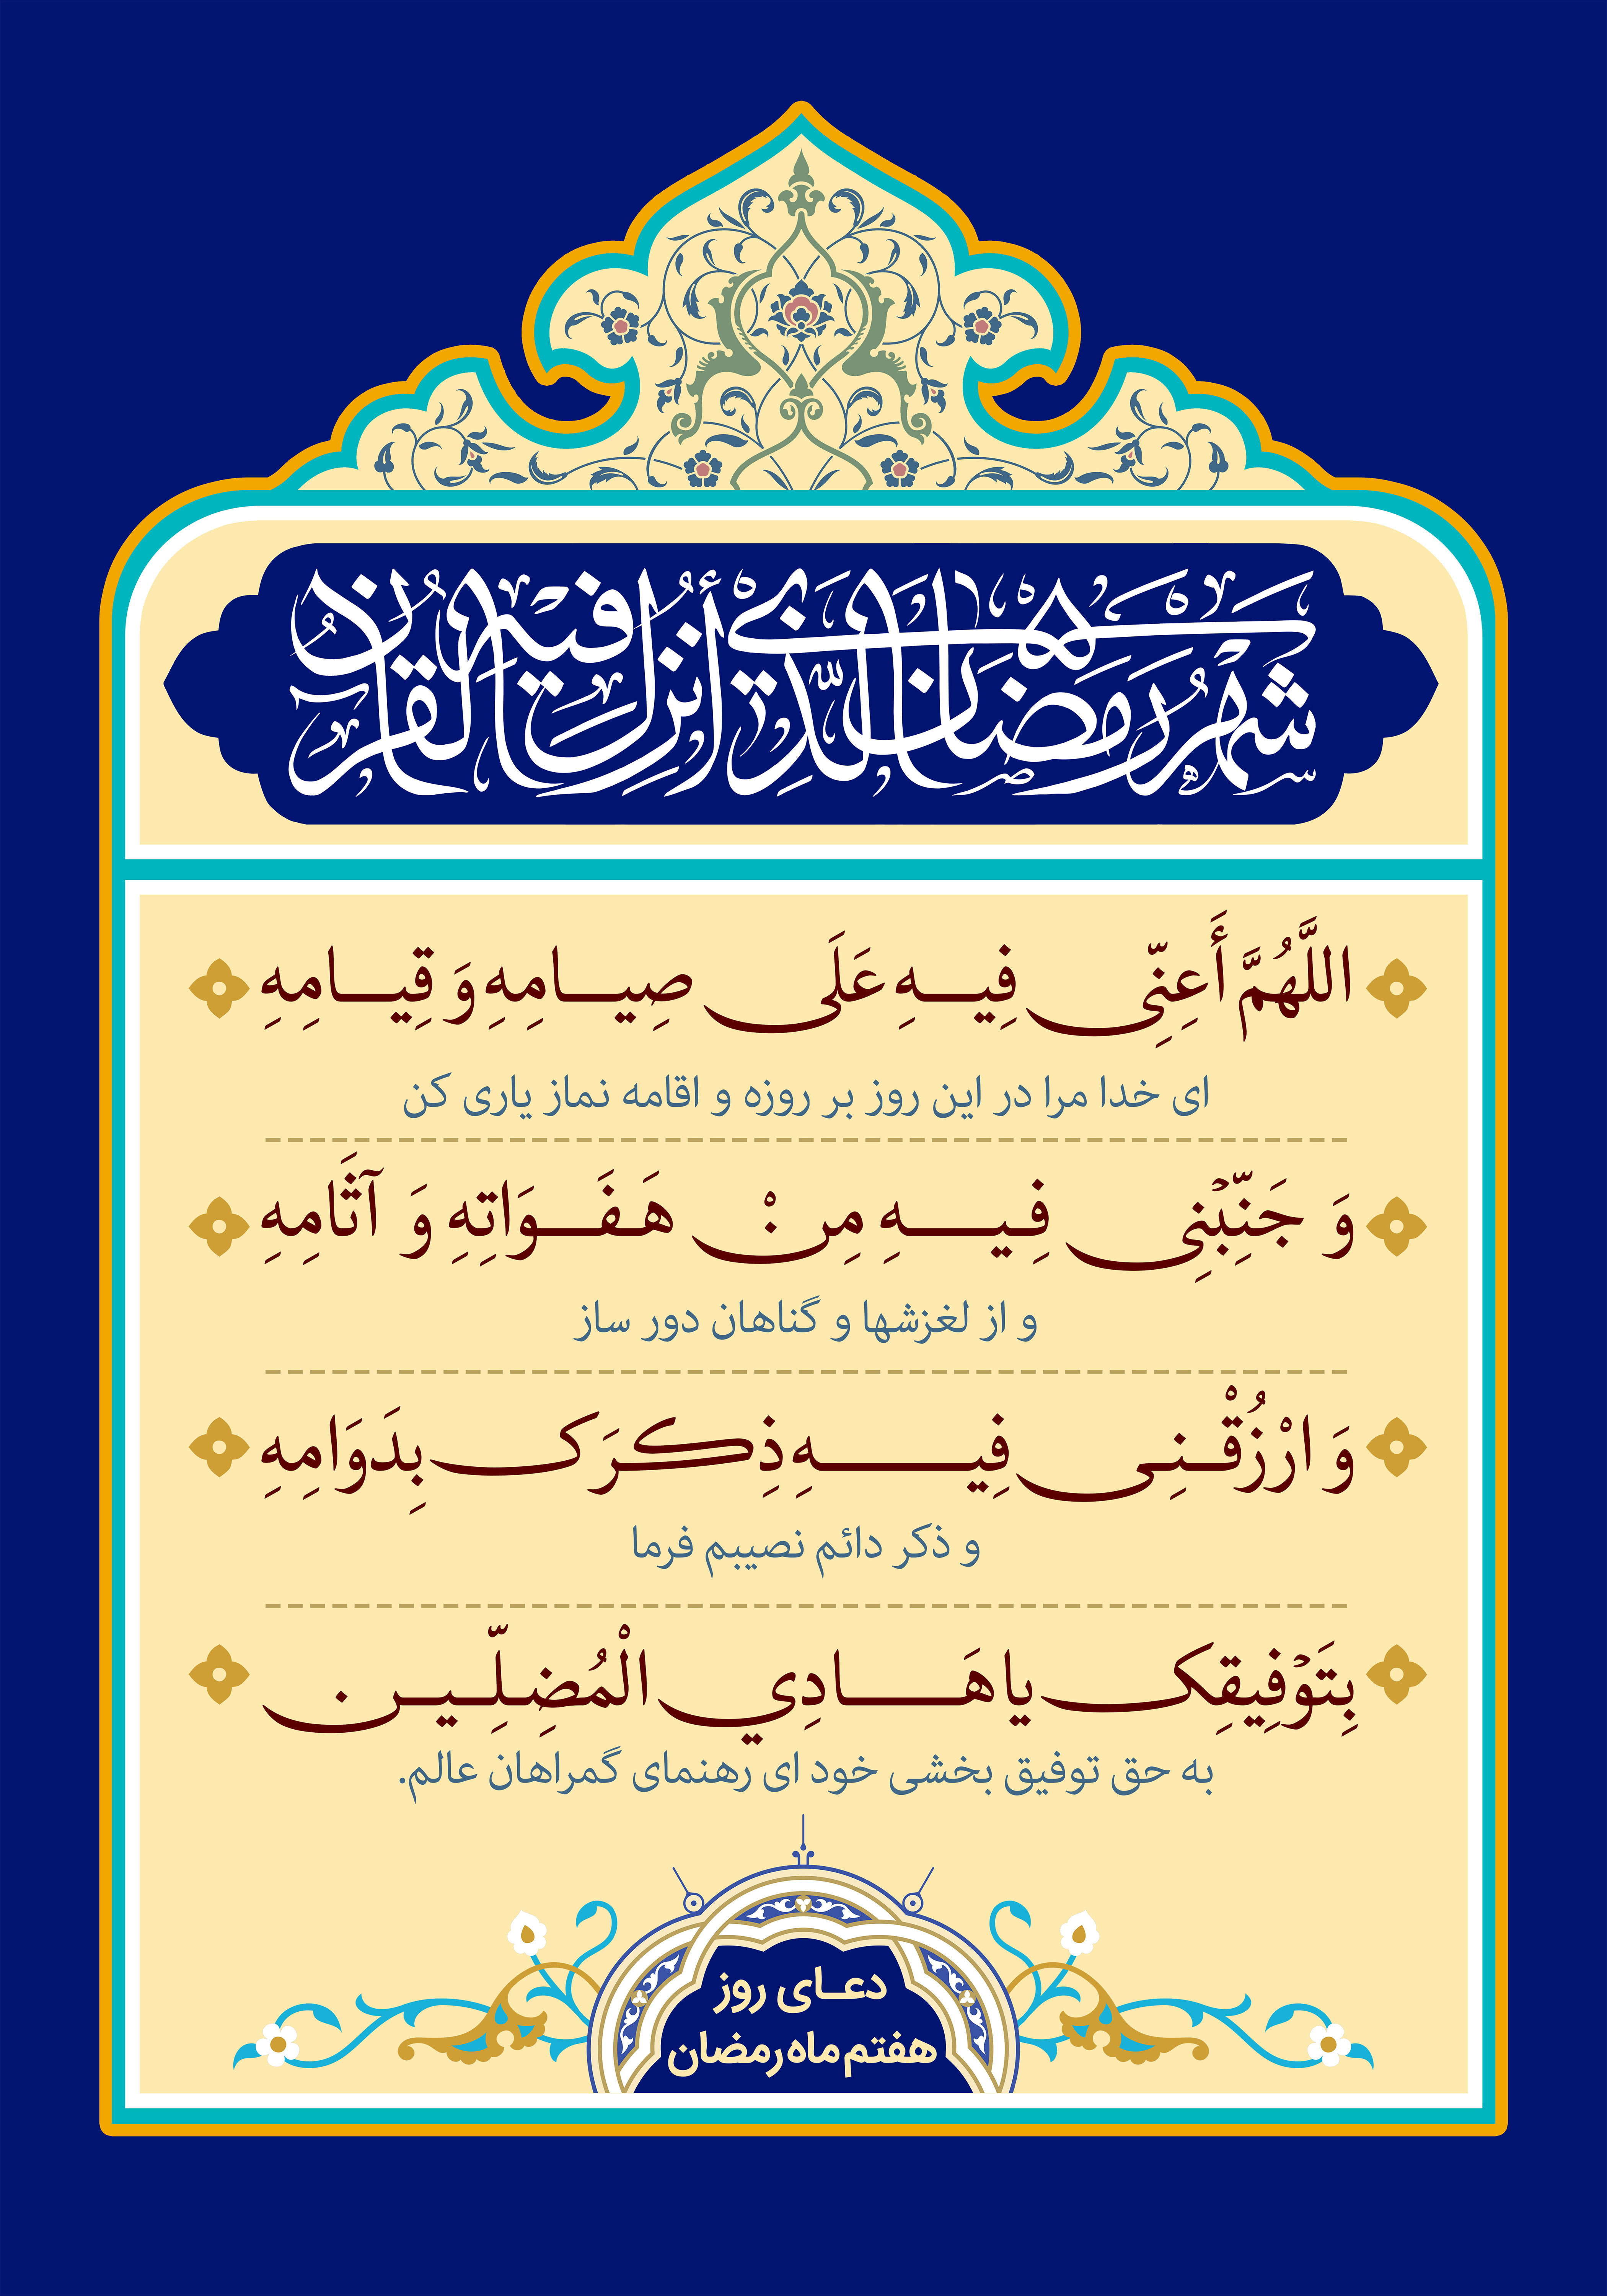 شهر رمضان الذي أنزل فيه القرآن
اللَّهُمَّ أَعِنِّي فِيهِ عَلَى صِيامِهِ وَ قِيامِهِ
ای خدا مرا در این روز بر روزه و اقامه نماز یاری کن
وَ جَنِّبْنِي فِيهِ مِنْ هَفَوَاتِهِ وَ آثَامِهِ
و از لغزشها و گناهان دور ساز
وَ ارْزُقْنِي فِيهِ ذِكْرَكَ بِدَوَامِهِ
و ذکر دائم نصیبم فرما
بِتَوْفِيقِكَ يا هَادِي الْمُضِلِّينَ.
به حق توفیق بخشی خود ای رهنمای گمراهان عالم.
دعای روز
هفتم ماه رمضان